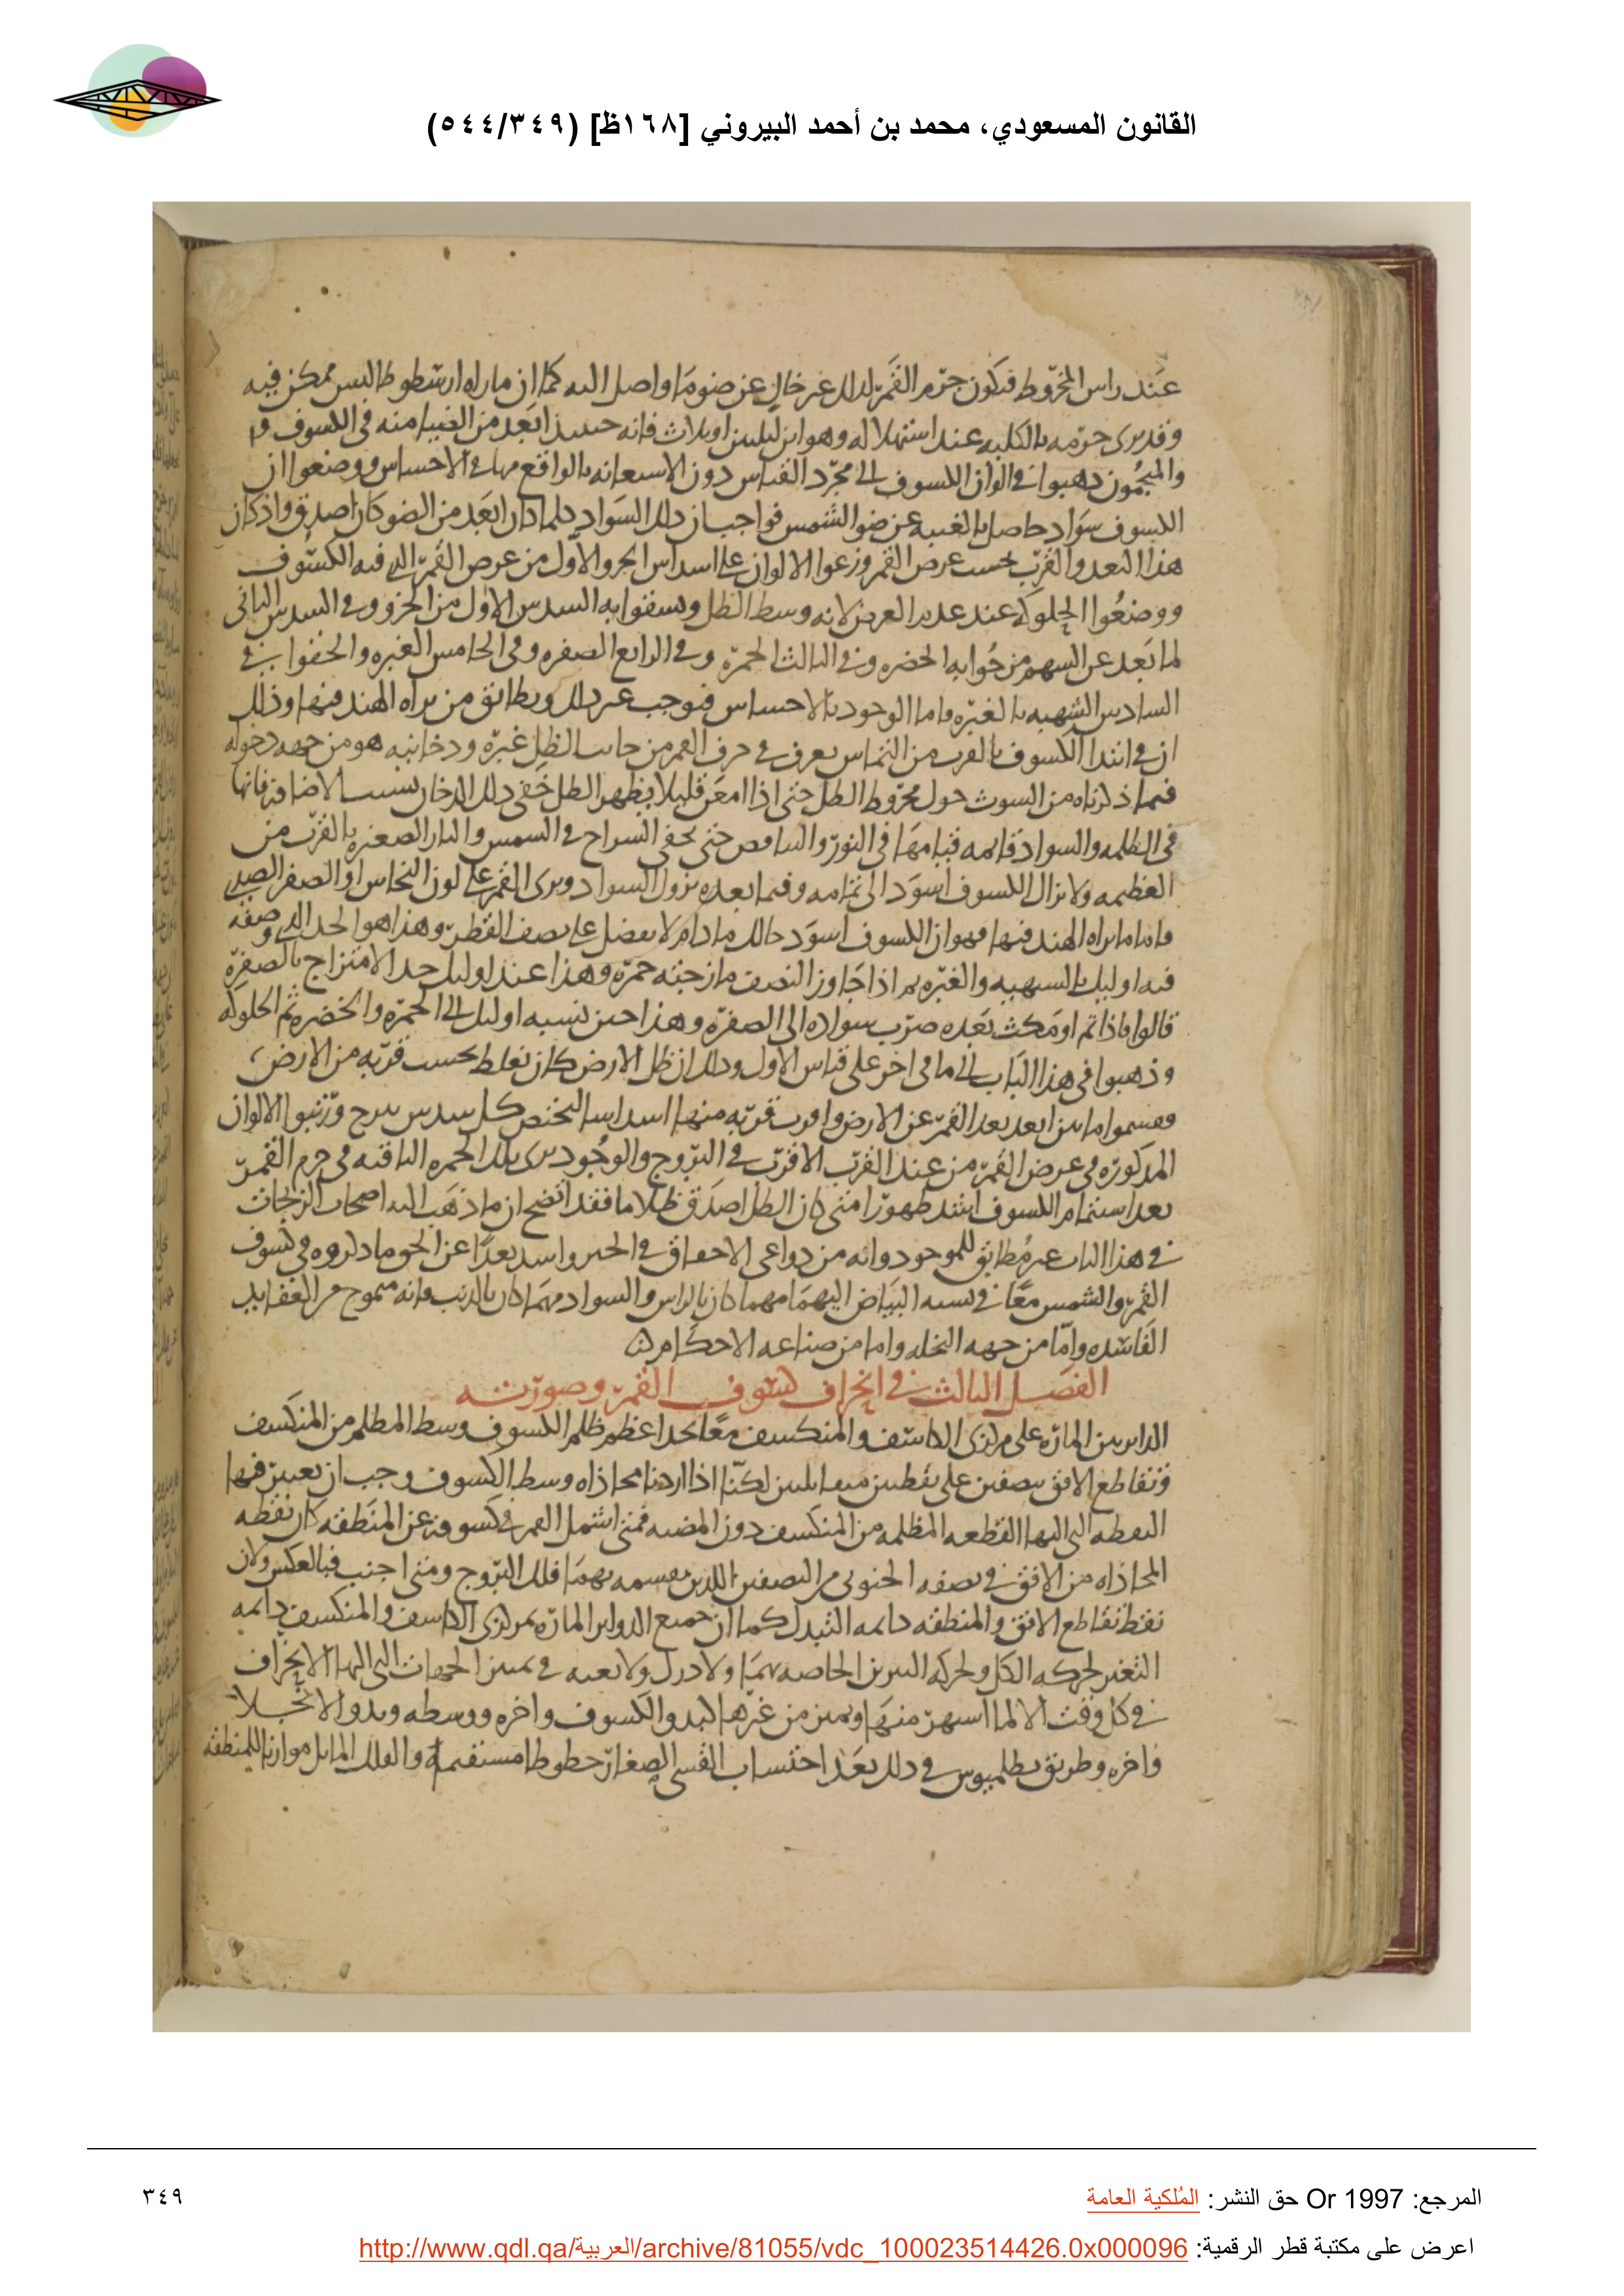 القانون المسعودي، محمد بن أحمد البيروني [١٦٨ظ] (٥٤٤/٣٤٩)
عند راس المخروط فيكون جرم القمر لذلك غير خال عن ضو ما واصل اليه كما ان ما راه ارسطوطاليس ممكن فيه
وقد يرى جرمه بالكلية عند استهلاله وهو ابن ليلتين او ثلاث فانه حينئذ ابعد من الضيا منه في الكسوف
والمنجمون ذهبوا في الوان الكسوف الى مجرد القياس دون الاستعانة بالواقع منها في الاحساس ووضعوا ان
الكسوف سواد حاصل بالغيبة عن ضو الشمس فواجب ان ذلك السواد كلما كان ابعد من الضو كان اصدق واذ كان
هذا البعد والقرب بحسب عرض القمر وزعوا الالوان على اسداس الجزو الاول من عرض القمر الذي فيه الكسوف
ووضعوا الحلوكة عند عديم العرض لانه وسط الظل ويسقوا به السدس الاول من الجزو وفي السدس الثاني
لما بعد عن السهم من حوابه الخضرة وفي الثالث الحمرة وفي الرابع الصفرة وفي الخامس الغبرة والحقوا في
السادس الشهبة بالغبرة واما الوجود بالاحساس فيوجب غير ذلك ويطابق من يراه الهند فيها وذلك
ان في ابتدا الكسوف بالقرب من التماس يعرف في حرف القمر من جانب الظل غبرة ودخانية هو من جهة دخوله
فيما ذكرناه من السوب حول مخروط الظل حتى اذا امعن قليلا يظهر الظل خفي ذلك الدخان بسبب الاضافة فانها
في الظلمة والسواد قائمة قيامها في النور والبياض حتى يخفى السراج في الشمس والنار الصغيرة بالقرب من
العظيمة ولا يزال الكسوف اسود الى تمامه وفيما بعده يزول السواد ويرى القمر على لون النحاس او الصفر الصدي
واما ما يراه الهند فيها فهو ان الكسوف اسود حالك ما دام لا يفضل على نصف القطر وهذا هو الحد الذي وصفه
فيه اوليك بالشهبة والغبرة ثم اذا جاوز النصف مازجته حمرة وهذا عند اوليك حد الامتزاج بالصفرة
قالوا فاذا تم او مكث بعده ضرب سواده الى الصفرة وهذا حين نسبه اوليك الى الحمرة والخضرة ثم الحلوكة
وذهبوا في هذا الباب الى ماخذ اخر على قياس الاول وذلك ان ظل الارض كان يغلظ بحسب قربه من الارض
فقسموا ما بين ابعد بعد القمر عن الارض واقرب قربه منها اسداسا ليختص كل سدس ببرج ورتبوا الالوان
المذكورة في عرض القمر من عند القرب الاقرب في البروج والوجود يرى تلك الحمرة الباقية في جرم القمر
بعد استتمام الكسوف اشد ظهورا متى كان الظل اصدق ظلاما فقد اتضح ان ما ذهب اليه اصحاب الزيجات
في هذا الباب غير مطابق للموجود وانه من دواعي الاخفاق في الخبر واشد بعدا عن الحق ما ذكروه في كسوف
القمر والشمس معا في نسبة البياض اليهما مهما كان بالراس والسواد مهما كان بالذنب فانه ممزوج من العقايد
الفاسدة واما من جهة النحلة واما من صناعة الاحكام
الفصل الثالث في انحراف كسوف القمر وصورته
الدايرتين المارة على مركزي الكاسف والمنكسف معا يحد اعظم ظلم الكسوف وسط المظلم من المنكسف
وتقاطع الافق بنصفين على نقطتين متقابلتين لكنا اذا اردنا محاذاه وسط الكسوف وجب ان نعين فيها
النقطة التي اليها القطعة المظلمة من المنكسف دون المضية فمتى اشمل القمر في كسوفه عن المنطقة كان نقطة
المحاذاه من الافق في نصفه الجنوبي من النصفين اللذين يقسمه بهما فلك البروج ومتى اجنب فبالعكس ولان
نقط تقاطع الافق والمنطقة دايمة التبدل كما ان جميع الدواير المارة بمركزي الكاسف والمنكسف دايمة
التغير لحركة الكل ولحركة النيرين الخاصة بهما ولا درك ولا تعبه في تمييز الجهات التي اليها الانحراف
في كل وقت الا لما اشهر منها وتميز من غيرها كبدو الكسوف واخره ووسطه وبدو الانجلا
واخره وطريق بطلميوس في ذلك بعد احتساب القسي الصغار خطوطا مستقيمة والفلك المايل موازيا للمنطقة
المرجع: Or 1997 حق النشر: المُلكية العامة
٣٤٩
اعرض على مكتبة قطر الرقمية: http://www.qdl.qa/العربية/archive/81055/vdc_100023514426.0x000096